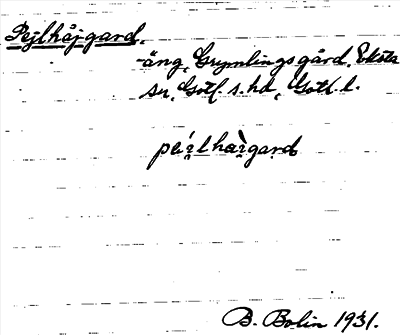 Pejlhåjgard.
äng, Grymlingsgård, Eksta
sn, Gotl. s. hd, Gotl. l.
pei̯lhài̯gard
B. Bolin 1931.